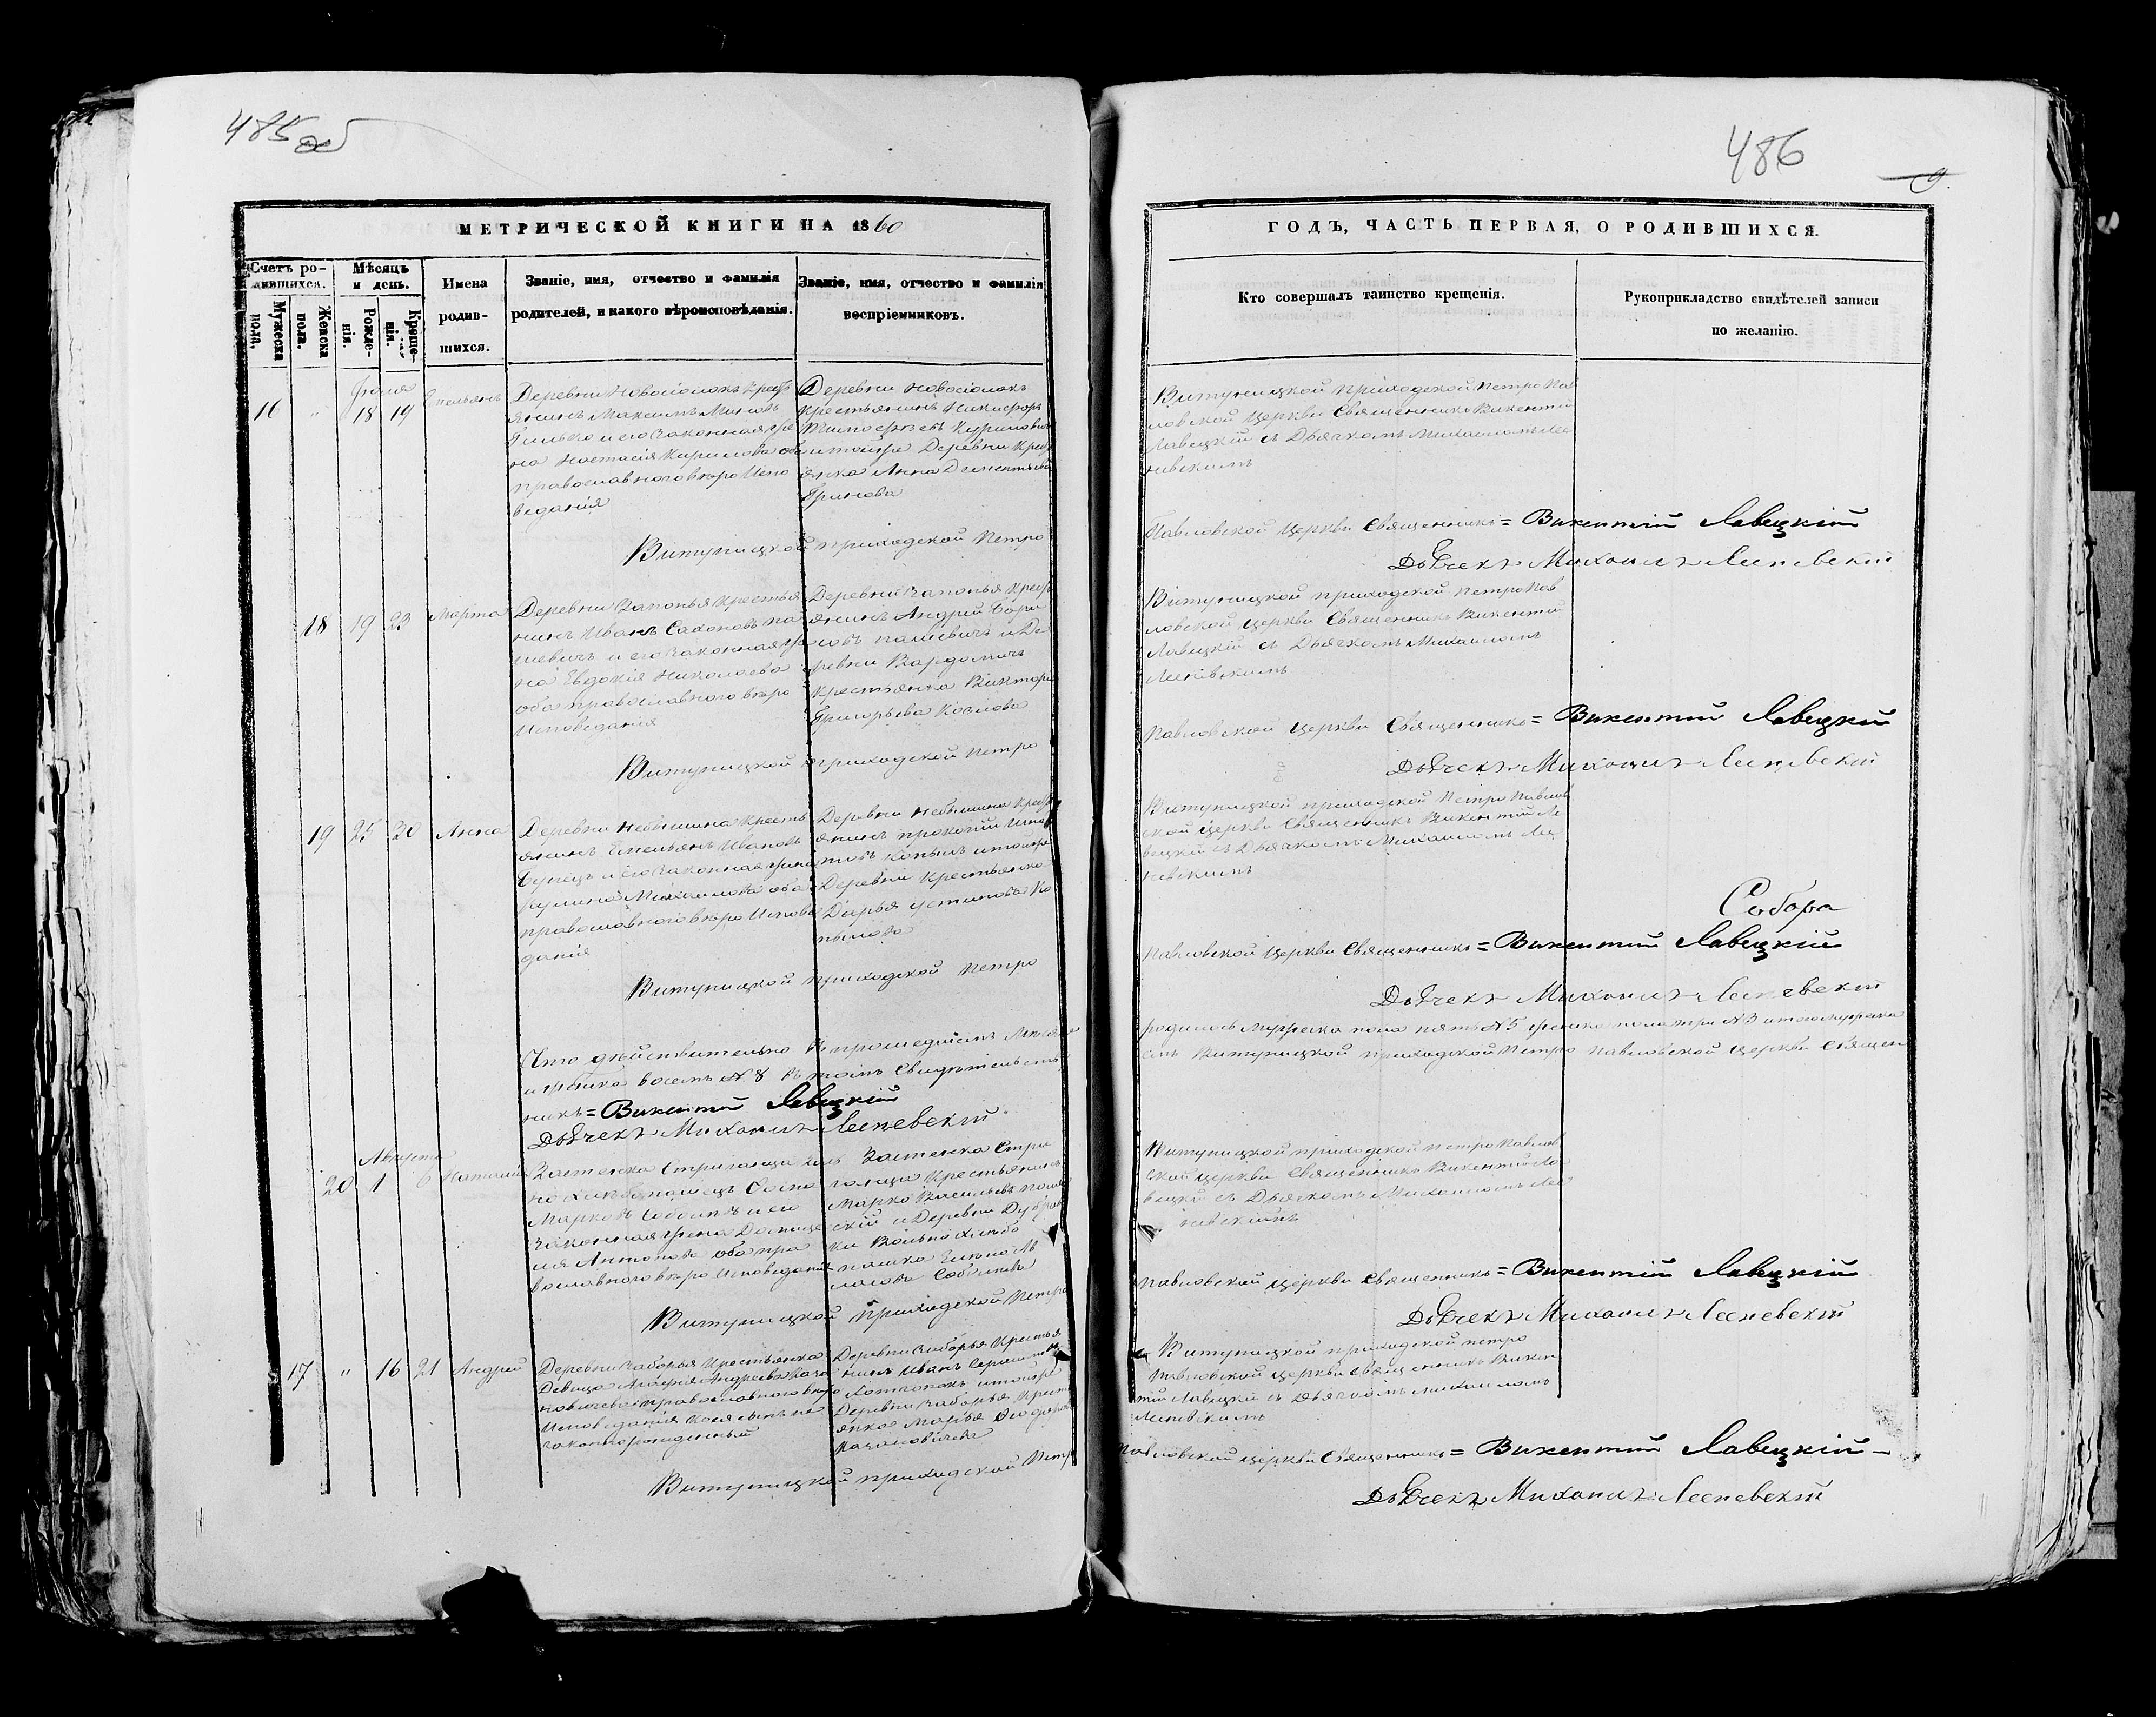 485об
МЕТРИЧЕСКОЙ КНИГИ НА 1860
Счетъ ро-
дившихся.
Мужеска
пола.
Женска
пола.
Мѣсяцъ
и день.
Рожде-
нія.
Креще-
нія.
Имена
родив-
шихся.
Званіе, имя, отчество и фамилія
родителей, и какого вѣроисповѣданія.
Званіе, имя, отчество и фамилія
воспріемниковъ.
16 " 18 19
Деревни Новосіолокъ Крестъ
янинъ Максимъ
и его Законная Же
на Настасія Кирилова оба
православного вѣро Испо
веданія
Деревни Новосіолокъ
Крестьянинъ Никифоръ
Деревни Крест
янка Анна Дементьева
Гринова
Витуницкой приходской Петро
18 19 23 Марта
Деревни Запонья Крестья
нинъ Иванъ па
шевичъ и его Законная Же
на Евдокія Николаева
оба православного вѣро
Исповеданія
Деревни Запонья Крест
янинъ Андрей Бори
совъ пашевичъ и Де
ревни Вардомичъ
Крестьянка Виктори
Григорьева Козлова
Витуницкой приходской Петро
19 25 30 Анна
Деревни Небышина Кресть
янинъ Емельянъ Ивановъ
и его Законная Жена
Михайлова оба
православного вѣро Испове
данія
Деревни Небышина Крест
янинъ прокопій Игна
товъ Копылъ и тойже
Деревни Крестьянка
Дарья Устинова Ко
пылова
Витуницкой приходской Петро
Что дѣйствительно
восемь N. 8 въ томъ Свидѣтельств
никъ = Викентій Лавецкій
Дьячекъ Михаилъ Лесневскій
Августъ
20 1 6 Наталія
Застенка Стриганца
Осипъ
Марковъ Соболь и его
Законная Жена Домице
ля Антонова оба пра
вославного вѣро Исповеданія
Застенка Стри
ганца Крестьянинъ
Марко Васильевъ
и Деревни Дубров
ки Вольно хлѣбо
пашка Елена
Соболева
Витуницкой приходской Петро
17 " 16 21 Андрей
Деревни Заборья Крестьянка
Девица Андреева Каза
новичева православного вѣро
Исповеданія коея сынъ не
законнорожденный
Деревни Заборья Крестья
нинъ Иванъ
и тойже
Деревни Заборья Кресть
янка Марья
Казановичева
Витуницкой приходской Петро
486
9.
ГОДЪ, ЧАСТЬ ПЕРВАЯ, О РОДИВШИХСЯ.
Кто совершалъ таинство крещенія.
Рукоприкладство свидѣтелей записи
по желанію.
Витуницкой Приходской Петро Пав
ловской Церкви Священникъ Викентій
Лавецкій съ Дьячкомъ Михаиломъ Лес
невскимъ
Павловской Церкви Священникъ = Викентій Лавецкій
Дьячекъ Михаилъ Лесневскій
Витуницкой приходской Петро Пав
ловской Церкви Священникъ Викентій
Лавецкій съ Дьячкомъ Михаиломъ
Лесневскимъ
Павловской Церкви Священникъ = Викентій Лавецкій
Дьячекъ Михаилъ Лесневскій
Витуницкой приходской Петро Павлов
ской Церкви Священникъ Викентій Ла
вецкій съ Дьячкомъ Михаиломъ Лес
невскимъ
Собора
Павловской Церкви Священникъ = Викентій Лавецкій
Дьячекъ Михаилъ Лесневскій
родилось мужеска пола пять N 5 женска пола три N 3 итого мужеска
Витуницкой приходской Петро Павловской Церкви Священ
Витуницкой приходской Петро Павлов
ской Церкви Священникъ Викентій Ла
вецкій съ Дьячкомъ Михаиломъ Лес
невскимъ
Павловской Церкви Священникъ = Викентій Лавецкій
Дьячекъ Михаилъ Лесневскій
Витуницкой приходской Петро
Павловской Церкви Священникъ Викен
тій Лавецкій съ Дьячкомъ Михаиломъ
Лесневскимъ
Павловской Церкви Священникъ = Викентій Лавецкій
Дьячекъ Михаилъ Лесневскій